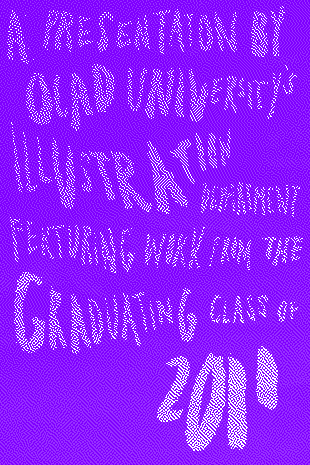 A PRESENTATION BY
OCAD UNIVERSITY'S
ILLUSTRATION
DEPARTMENT
FEATURING WORK FROM THE
GRADUATING CLASS OF
2011